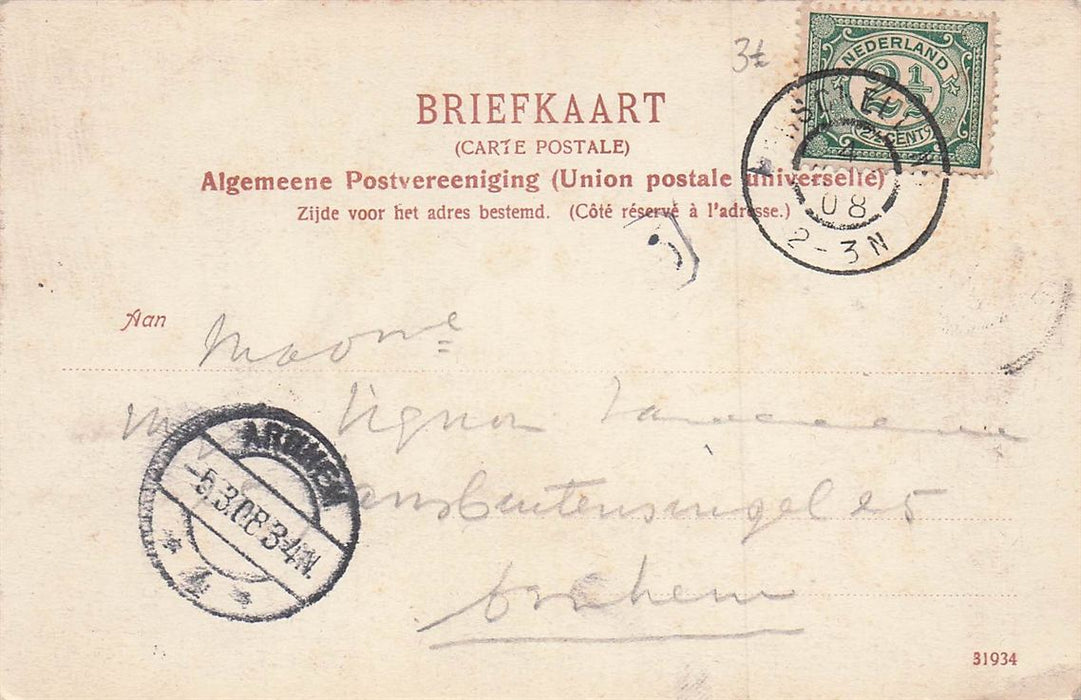 3t
NEDERLAND
2½
(2½ CENT)
4
08
2-3N
BRIEFKAART
(CARTE POSTALE)
Algemeene Postvereeniging (Union postale universelle)
Zijde voor het adres bestemd. (Côté réservé à l'adresse.)
Aan
Vignon
25
Arnhem
ARNHEM
-5.3.08.3-4N.
4
31934